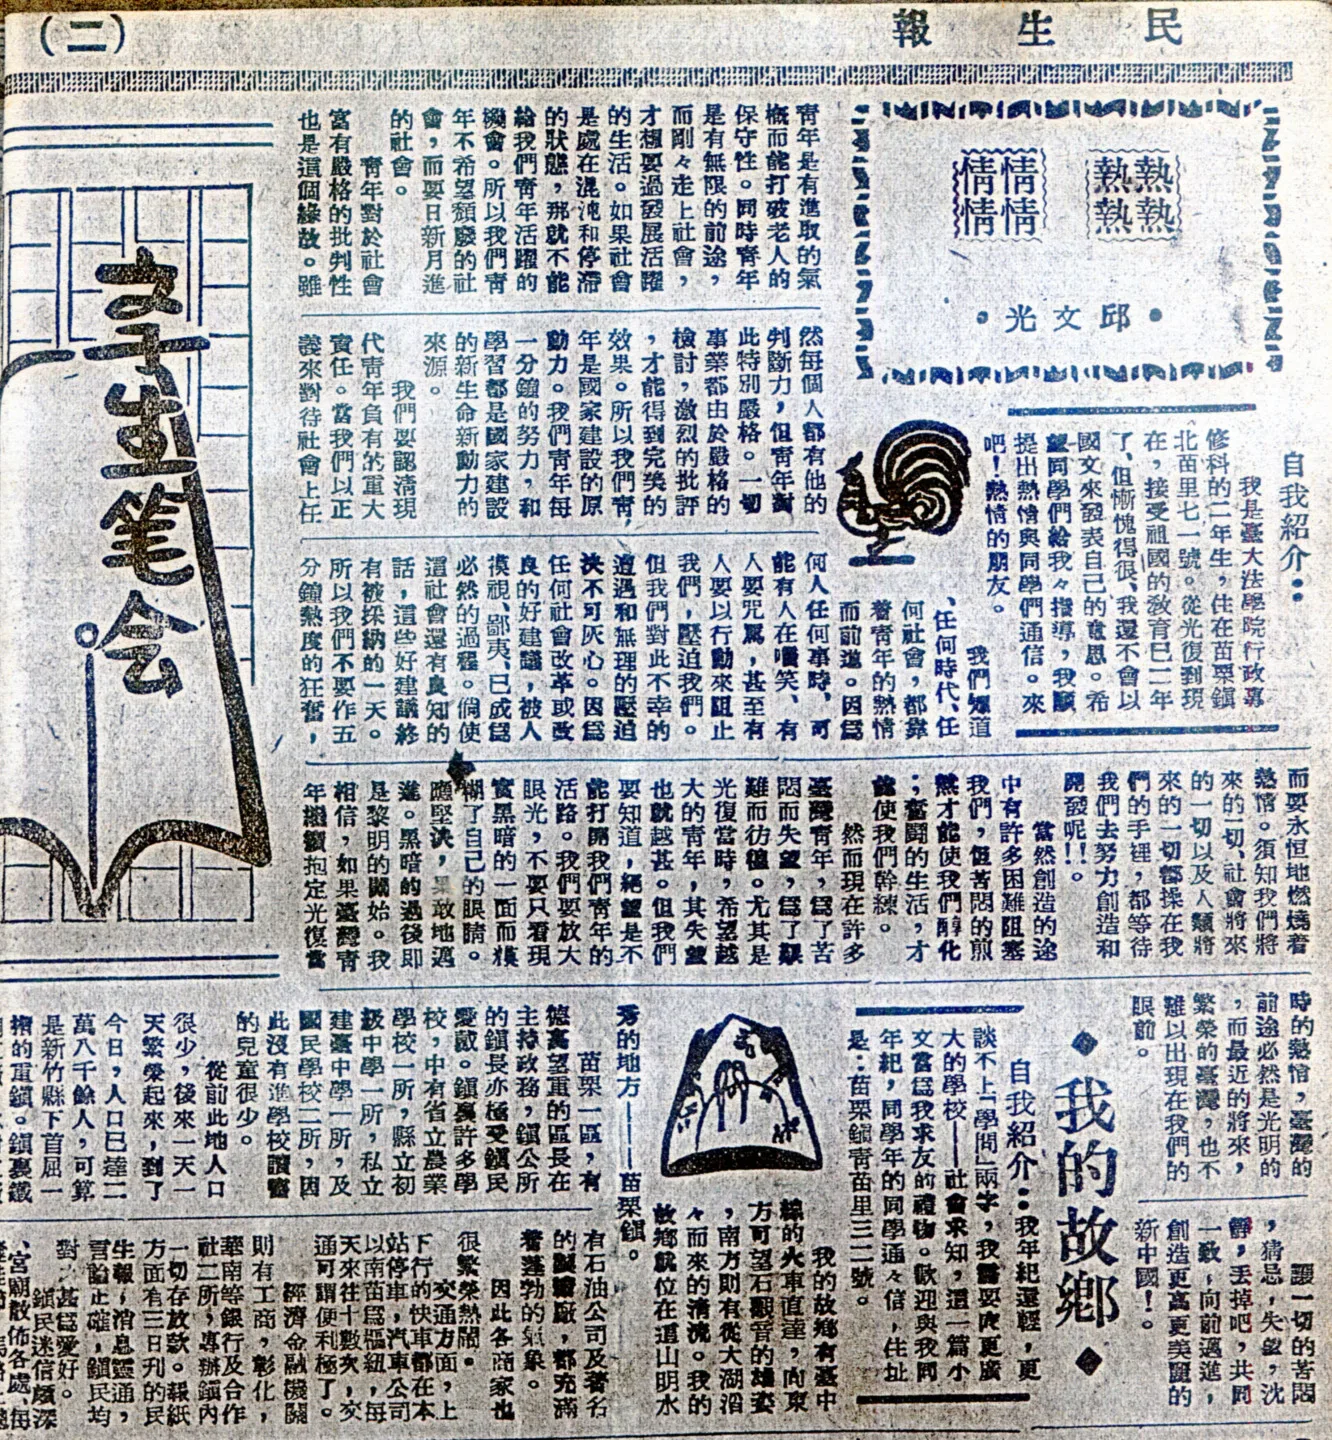 民生報
(二)
熱熱
熱熱
情情
情情
•邱文光•
自我紹介：
我是臺大法學院行政專
修科的二年生，住在苗栗鎮
北苗里七一號。從光復到現
在，接受祖國的教育已二年
了，但慚愧得很，我還不會以
國文來發表自己的意思。希
望同學們給我々指導，我願
提出熱情與同學們通信。來
吧！熱情的朋友。
我們知道
、任何時代、任
何社會，都靠
着青年的熱情
而前進。因爲
青年是有進取的氣
概而能打破老人的
保守性。同時青年
是有無限的前途，
而剛々走上社會，
才想要過發展活躍
的生活。如果社會
是處在混沌和停滯
的狀態，那就不能
給我們青年活躍的
機會。所以我們青
年不希望頹廢的社
會，而要日新月進
的社會。
青年對於社會
富有嚴格的批判性
也是這個緣故。雖
然每個人都有他的
判斷力，但青年對
此特別嚴格。一切
事業都由於嚴格的
檢討，激烈的批評
，才能得到完美的
效果。所以我們青，
年是國家建設的原
動力。我們青年每
一分鐘的努力，和
學習都是國家建設
的新生命新動力的
來源。
我們要認清現
代青年負有的重大
責任。當我們以正
義來對待社會上任
何人任何事時、可
能有人在嘲笑、有
人要咒罵，甚至有
人要以行動來阻止
我們，壓迫我們。
但我們對此不幸的
遭遇和無理的壓迫
決不可灰心。因爲
任何社會改革或改
良的好建議，被人
漠視、鄙夷、已成爲
必然的過程。倘使
這社會還有良知的
話，這些好建議終
有被採納的一天。
所以我們不要作五
分鐘熱度的狂奮，
而要永恒地燃燒着
熱情。須知我們將
來的一切、社會將來
的一切以及人類將
來的一切都操在我
們的手裡，都等待
我們去努力創造和
開發呢！！
當然創造的途
中有許多困難阻塞
我們，但苦悶的煎
熬才能使我們醇化
；奮鬪的生活，才
能使我們幹練。
然而現在許多
臺灣青年，爲了苦
悶而失望，爲了艱
難而彷徨。尤其是
光復當時，希望越
大的青年，其失望
也就越甚。但我們
要知道，絕望是不
能打開我們青年的
活路。我們要放大
眼光，不要只看現
實黑暗的一面而模
糊了自己的眼睛。
應堅決，果敢地邁
進。黑暗的過後即
是黎明的開始。我
相信，如果臺灣青
年繼續抱定光復當
時的熱情，臺灣的
前途必然是光明的
，而最近的將來，
繁榮的臺灣，也不
難以出現在我們的
眼前。
讓一切的苦悶
，猜忌，失望，沈
靜，丟掉吧，共同
一致，向前邁進，
創造更高更美麗的
新中國！。
学生笔会
◆我的故鄉◆
自我紹介：我年紀還輕，更
談不上「學問」兩字，我需要向更廣
大的學校——社會求知，這一篇小
文當爲我求友的禮物。歡迎與我同
年紀，同學年的同學通々信，住址
是：苗栗鎮青苗里三二號。
我的故鄉有臺中
線的火車直達，向東
方可望石觀音的雄姿
，南方則有從大湖滔
々而來的清流。我的
故鄉就位在這山明水
秀的地方——苗栗鎮。
苗栗一區，有
德高望重的區長在
主持政務，鎮公所
的鎮長亦極受鎮民
愛戴。鎮裏許多學
校，中有省立農業
學校一所，縣立初
級中學一所，私立
建臺中學一所，及
國民學校二所，因
此沒有進學校讀書
的兒童很少。
從前此地人口
很少，後來一天一
天繁榮起來，到了
今日，人口已達二
萬八千餘人，可算
是新竹縣下首屈一
指的重鎮。鎮裏鐵
有石油公司及著名
的製糖廠，都充滿
着蓬勃的氣象。
因此各商家也
很繁榮熱鬧。
交通方面，上
下行的快車都在本
站停車，汽車公司
以南苗爲樞紐，每
天來往十數次，交
通可謂便利極了。
經濟金融機關
則有工商，彰化，
華南等銀行及合作
社二所，專辦鎮內
一切存放款。報紙
方面有三日刊的民
生報，消息靈通，
言論正確，鎮民均
對之甚爲愛好。
鎮民迷信頗深
、宮廟散佈各處，每